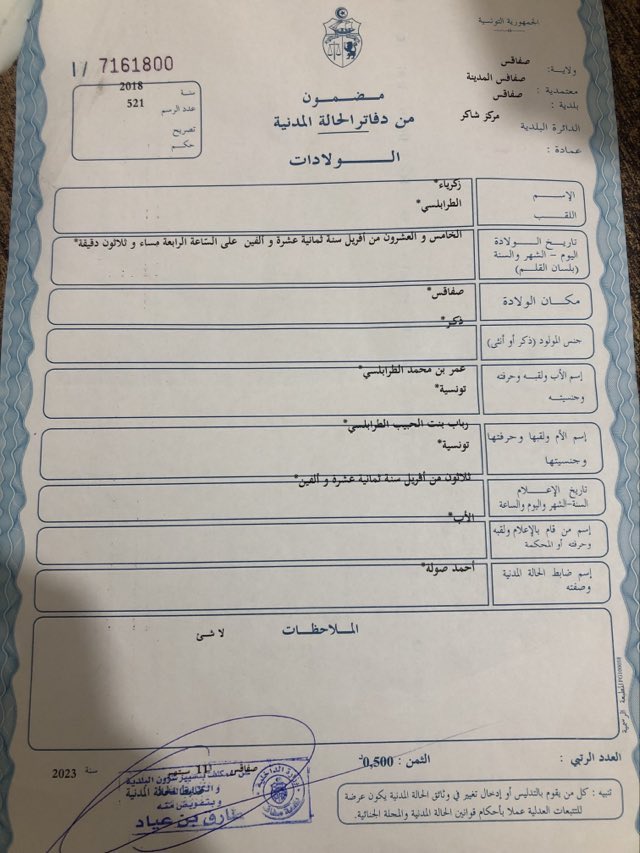 الجمهورية التونسية
ولاية: صفاقس
معتمدية: صفاقس المدينة
بلدية: صفاقس
الدائرة البلدية مركز شاكر
عمادة:
I/ 7161800
سنة 2018
عدد الرسم 521
تصريح
حكم:
مضمون
من دفاتر الحالة المدنية
الولادات
الإسم زكرياء*
اللقب الطرابلسي*
تاريخ الولادة
اليوم - الشهر والسنة
(بلسان القلم)
الخامس و العشرون من أفريل سنة ثمانية عشرة و ألفين على السّاعة الرابعة مساء و ثلاثون دقيقة*
مكان الولادة صفاقس*
جنس المولود (ذكر أو أنثى) ذكر*
إسم الأب ولقبه وحرفته عمر بن محمد الطرابلسي*
وجنسيته تونسية*
إسم الأم ولقبها وحرفتها رباب بنت الحبيب الطرابلسي*
وجنسيتها تونسية*
تاريخ الإعلام
السنة-الشهر واليوم والساعة
ثلاثون من أفريل سنة ثمانية عشرة و ألفين*
إسم من قام بالإعلام ولقبه
وحرفته أو المحكمة
الأب*
إسم ضابط الحالة المدنية
وصفته
أحمد صولة*
الملاحظات
لا شئ
المطبعة الرسمية
العدد الرتبي:
الثمن: 0,500د
صفاقس 11
سنة 2023
وبتفويض منه
طارق بن عياد
تنبيه: كل من يقوم بالتدليس أو إدخال تغيير في وثائق الحالة المدنية يكون عرضة
للتتبعات العدلية عملا بأحكام قوانين الحالة المدنية والمجلة الجنائية.